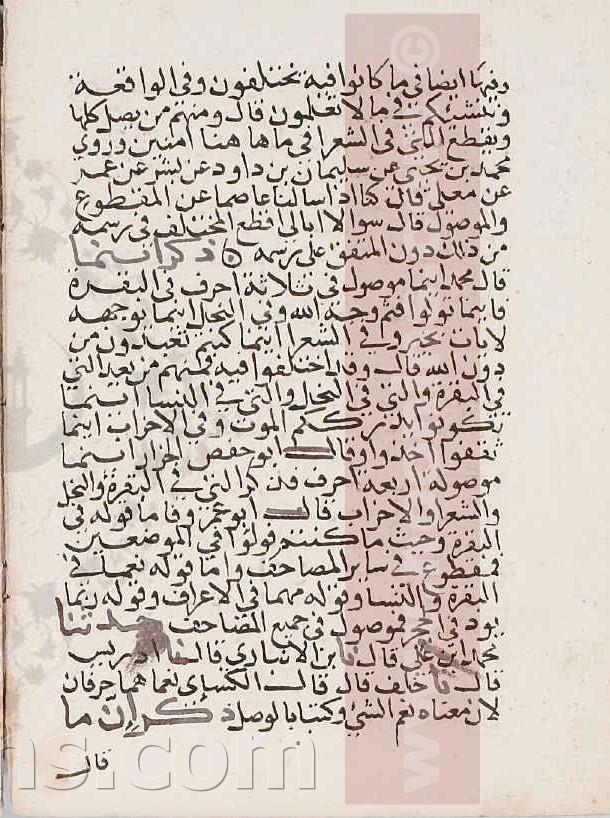 وفيها ايضا في ما كانوا فيه يختلفون وفي الواقعة
وننشئكم في ما لا تعلمون قال ومنهم من يصل كلها
ويقطع التي في الشعرا في ما هاهنا امنين وروي
محمد بن يحيى عن سليمان بن داود عن بشر عن
عن معلى قال كنا اذا سالنا عاصما عن المقطوع
والموصول قال سوا لا ابالي اقطع المختلف في رسمه
من ذلك دون المتفق على رسمه ذكر اينما
قال محمد اينما موصول في ثلاثة احرف في البقرة
فاينما تولوا فثم وجه الله وفي النحل اينما يوجهه
لا يات بخير وفي الشعرا اينما كنتم تعبدون من
دون الله قال وقد اختلفوا فيه فمنهم من يعد التي
في البقرة والتي في النحل والتي في النسا اينما
تكونوا يدرككم الموت وفي الاحزاب اينما
ثقفوا اخذوا وقال ابو حفص الخزاز اينما
موصولة اربعة احرف فذكر التي في البقرة والنحل
والشعرا والاحزاب قال ابو عمرو فاما قوله في
البقرة وحيث ما كنتم فولوا في الموضعين
فمقطوع في ساير المصاحف واما قوله نعما في
البقرة والنسا وقوله مهما في الاعراف وقوله ربما
يود في الحجر فموصول في جميع المصاحف حدثنا
محمد بن علي قال نا ابن الانباري قال نا ادريس
قال نا خلف قال قال الكسائي نعما هما حرفان
لان معناه نعم الشي وكتبا بالوصل ذكر ان ما
قال